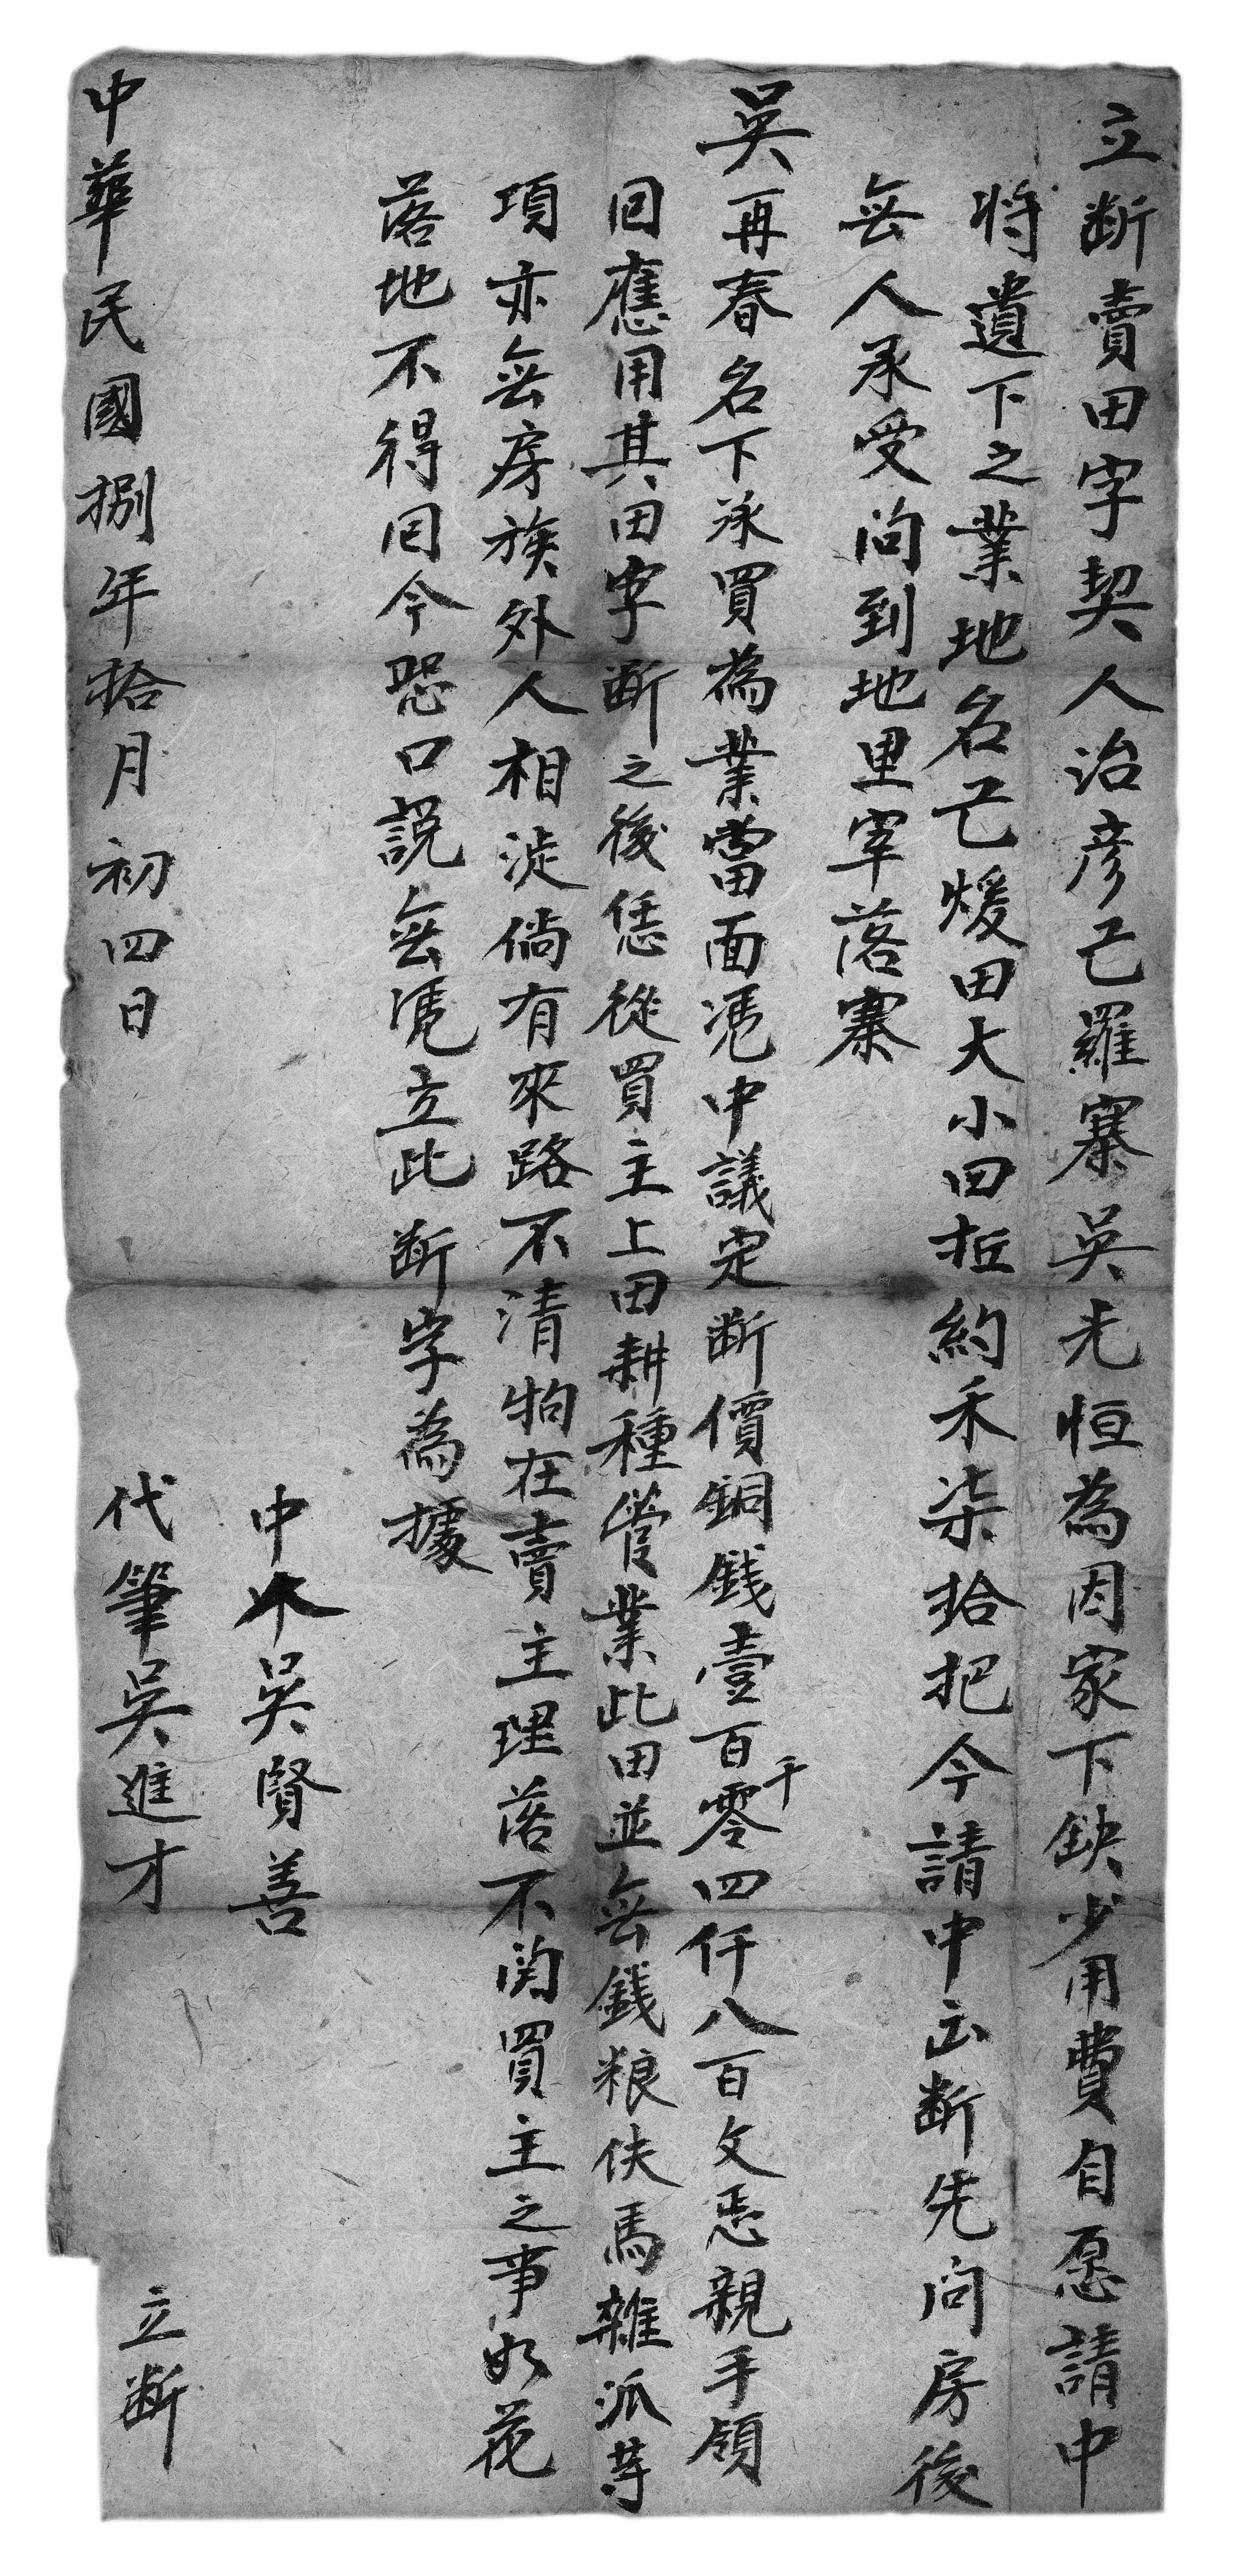 立断賣田字契人治彦己羅寨吳光恒為因家下缺少用費自愿請中
将遺下之業地名己煖田大小四坵約禾柒拾把今請中正断先问房後
無人承受问到地里宰落寨
吳再春名下承買為業當面凴中議定断價銅銭壹百千零四仟八百文凴親手領
回應用其田字断之後恁從買主上田耕種管業此田並無銭粮伕馬雜派等
項亦無房族外人相涉倘有來路不清拘在賣主理落不関買主之事如花
落地不得回今恐口説無凴立此断字為據
中人吳賢善
代筆吳進才
中華民國捌年拾月初四日
立断